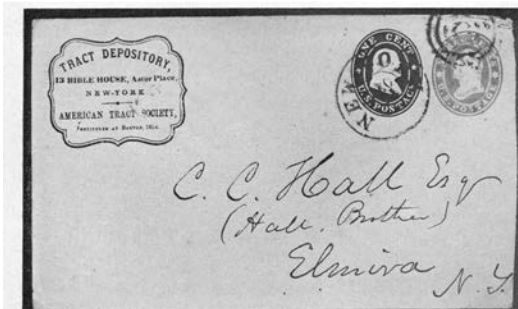 TRACT DEPOSITORY,
13 BIBLE HOUSE, Astor Place,
NEW-YORK
AMERICAN TRACT SOCIETY,
INSTITUTED AT BOSTON, 1814.
ONE CENT
U.S. POSTAGE
NEW
C. C. Hall Esq
(Hall. Brother)
Elmira
N. Y.